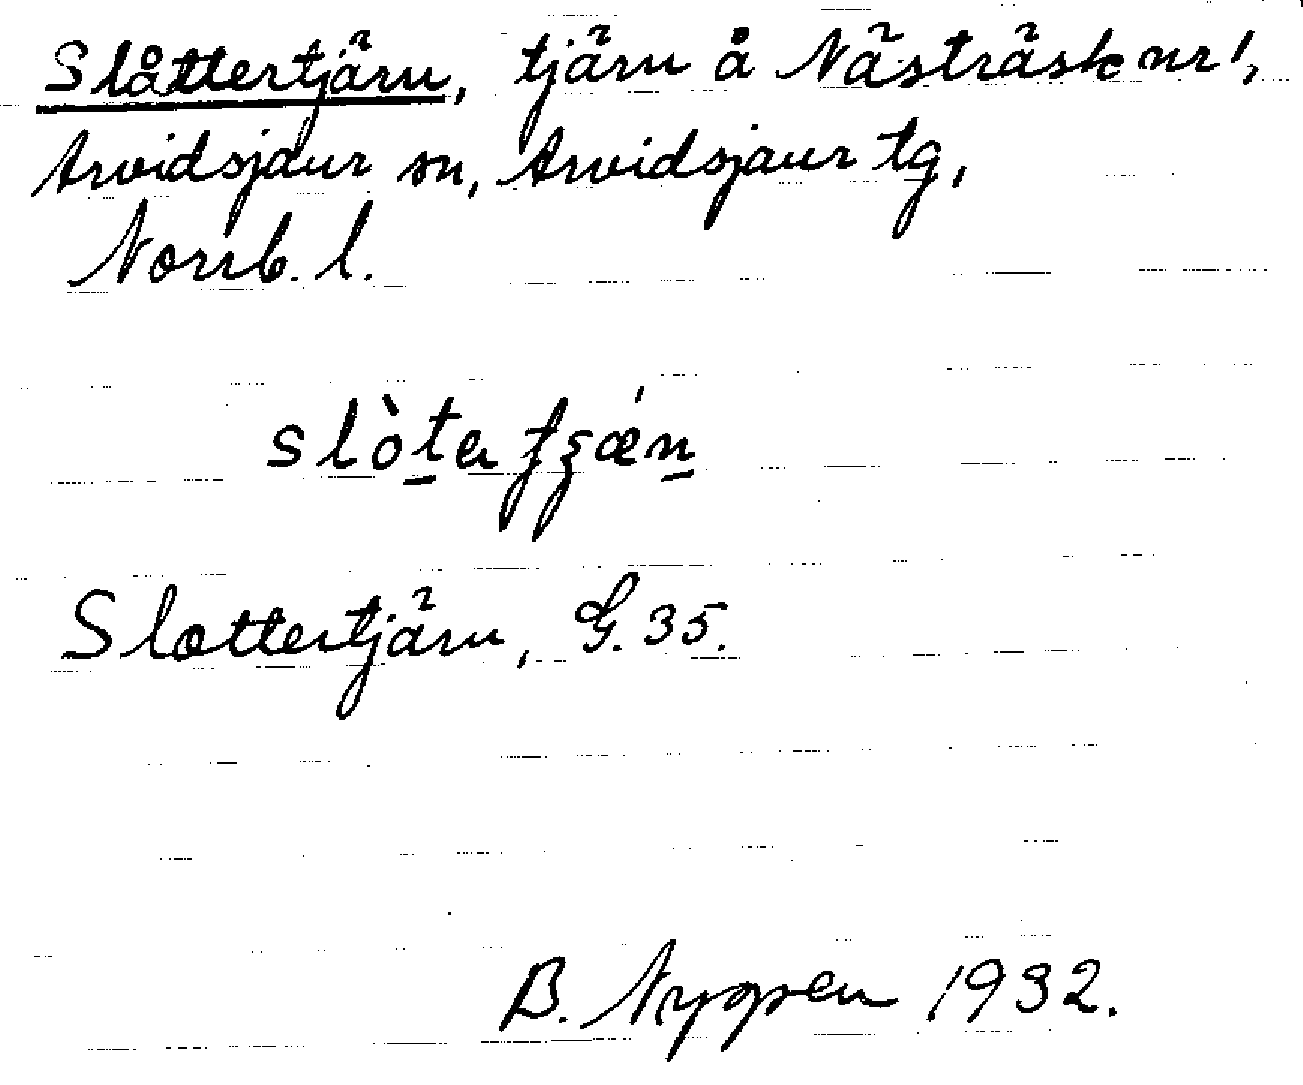 Slåttertjärn, tjärn å Nästräsk nr 1,
Arvidsjaur sn, Arvidsjaur tg,
Norrb. l.
Slottertjärn, G. 35.
B. Nygren 1932.